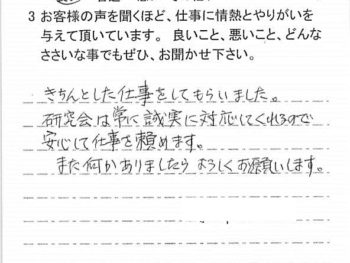 3 お客様の声を聞くほど、仕事に情熱とやりがいを
与えて頂いています。 良いこと、悪いこと、どんな
ささいな事でもぜひ、お聞かせ下さい。
きちんとした仕事をしてもらいました。
研究会は常に誠実に対応してくれるので
安心して仕事を頼めます。
また何かありましたら よろしくお願いします。